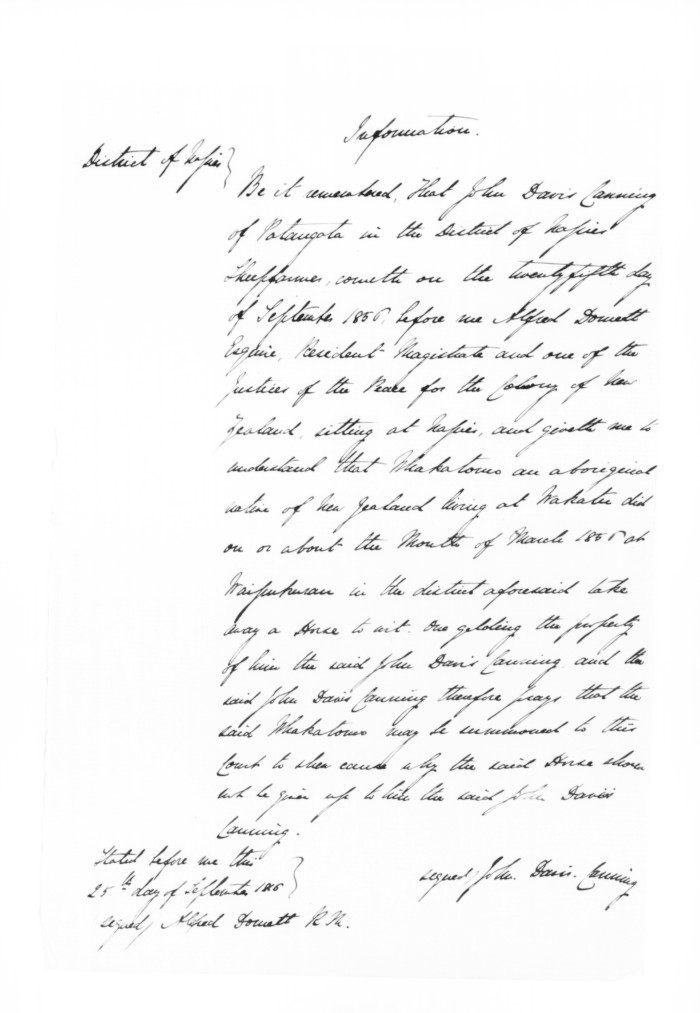 Information.
District of Napier }
Be it remembered, that John Davis Canning
of Patangata in the District of Napier
Sheepfarmer, cometh on the twentyfifth day
of September 1856, before me Alfred Domett
Esquire, Resident Magistrate and one of the
Justices of the Peace for the Colony of New
Zealand, sitting at Napier, and giveth me to
understand that Whakatomo an aboriginal
native of New Zealand living at Wakatu did
on or about the Month of March 1856 at
Waipukurau in the district aforesaid take
away a Horse to wit. One gelding the property
of him the said John Davis Canning and the
said John Davis Canning therefore prays that the
said Whakatomo may be summoned to this
Court to shew cause why the said Horse should
not be given up to him the said John Davis
Canning.
Stated before me this
25th day of September 1856 }
signed / John. Davis. Canning
signed / Alfred Domett R.M.